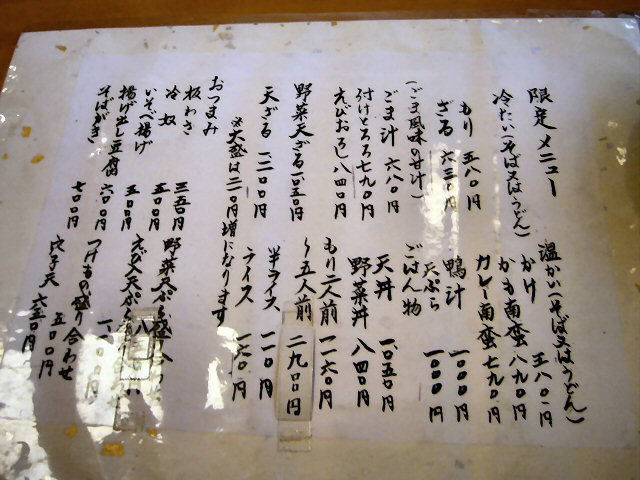 限定メニュー
冷たい(そば又はうどん)
もり 五八〇円
ざる 六三〇円
(ごま風味の甘汁)
ごま汁 六八〇円
付けとろろ 七九〇円
えびおろし 八四〇円
野菜天ざる 一〇五〇円
天ざる 一二〇〇円
※大盛は二一〇円増になります
おつまみ
板わさ 三五〇円
冷奴 五〇〇円
いそべ揚げ 五〇〇円
揚げ出し豆腐 六〇〇円
そばがき 七〇〇円
温かい(そば又はうどん)
かけ 五八〇円
かも南蛮 八九〇円
カレー南蛮 七九〇円
鴨汁 一〇〇〇円
天ぷら 一〇〇〇円
ごはん物
天丼 一〇五〇円
野菜丼 八四〇円
もり二人前 一一六〇円
〃 五人前 二九〇〇円
半ライス 一一〇円
ライス 一六〇円
野菜天ぷら盛り合わせ
えび入天ぷら
つけもの盛り合わせ 五〇〇円
穴子天 六五〇円